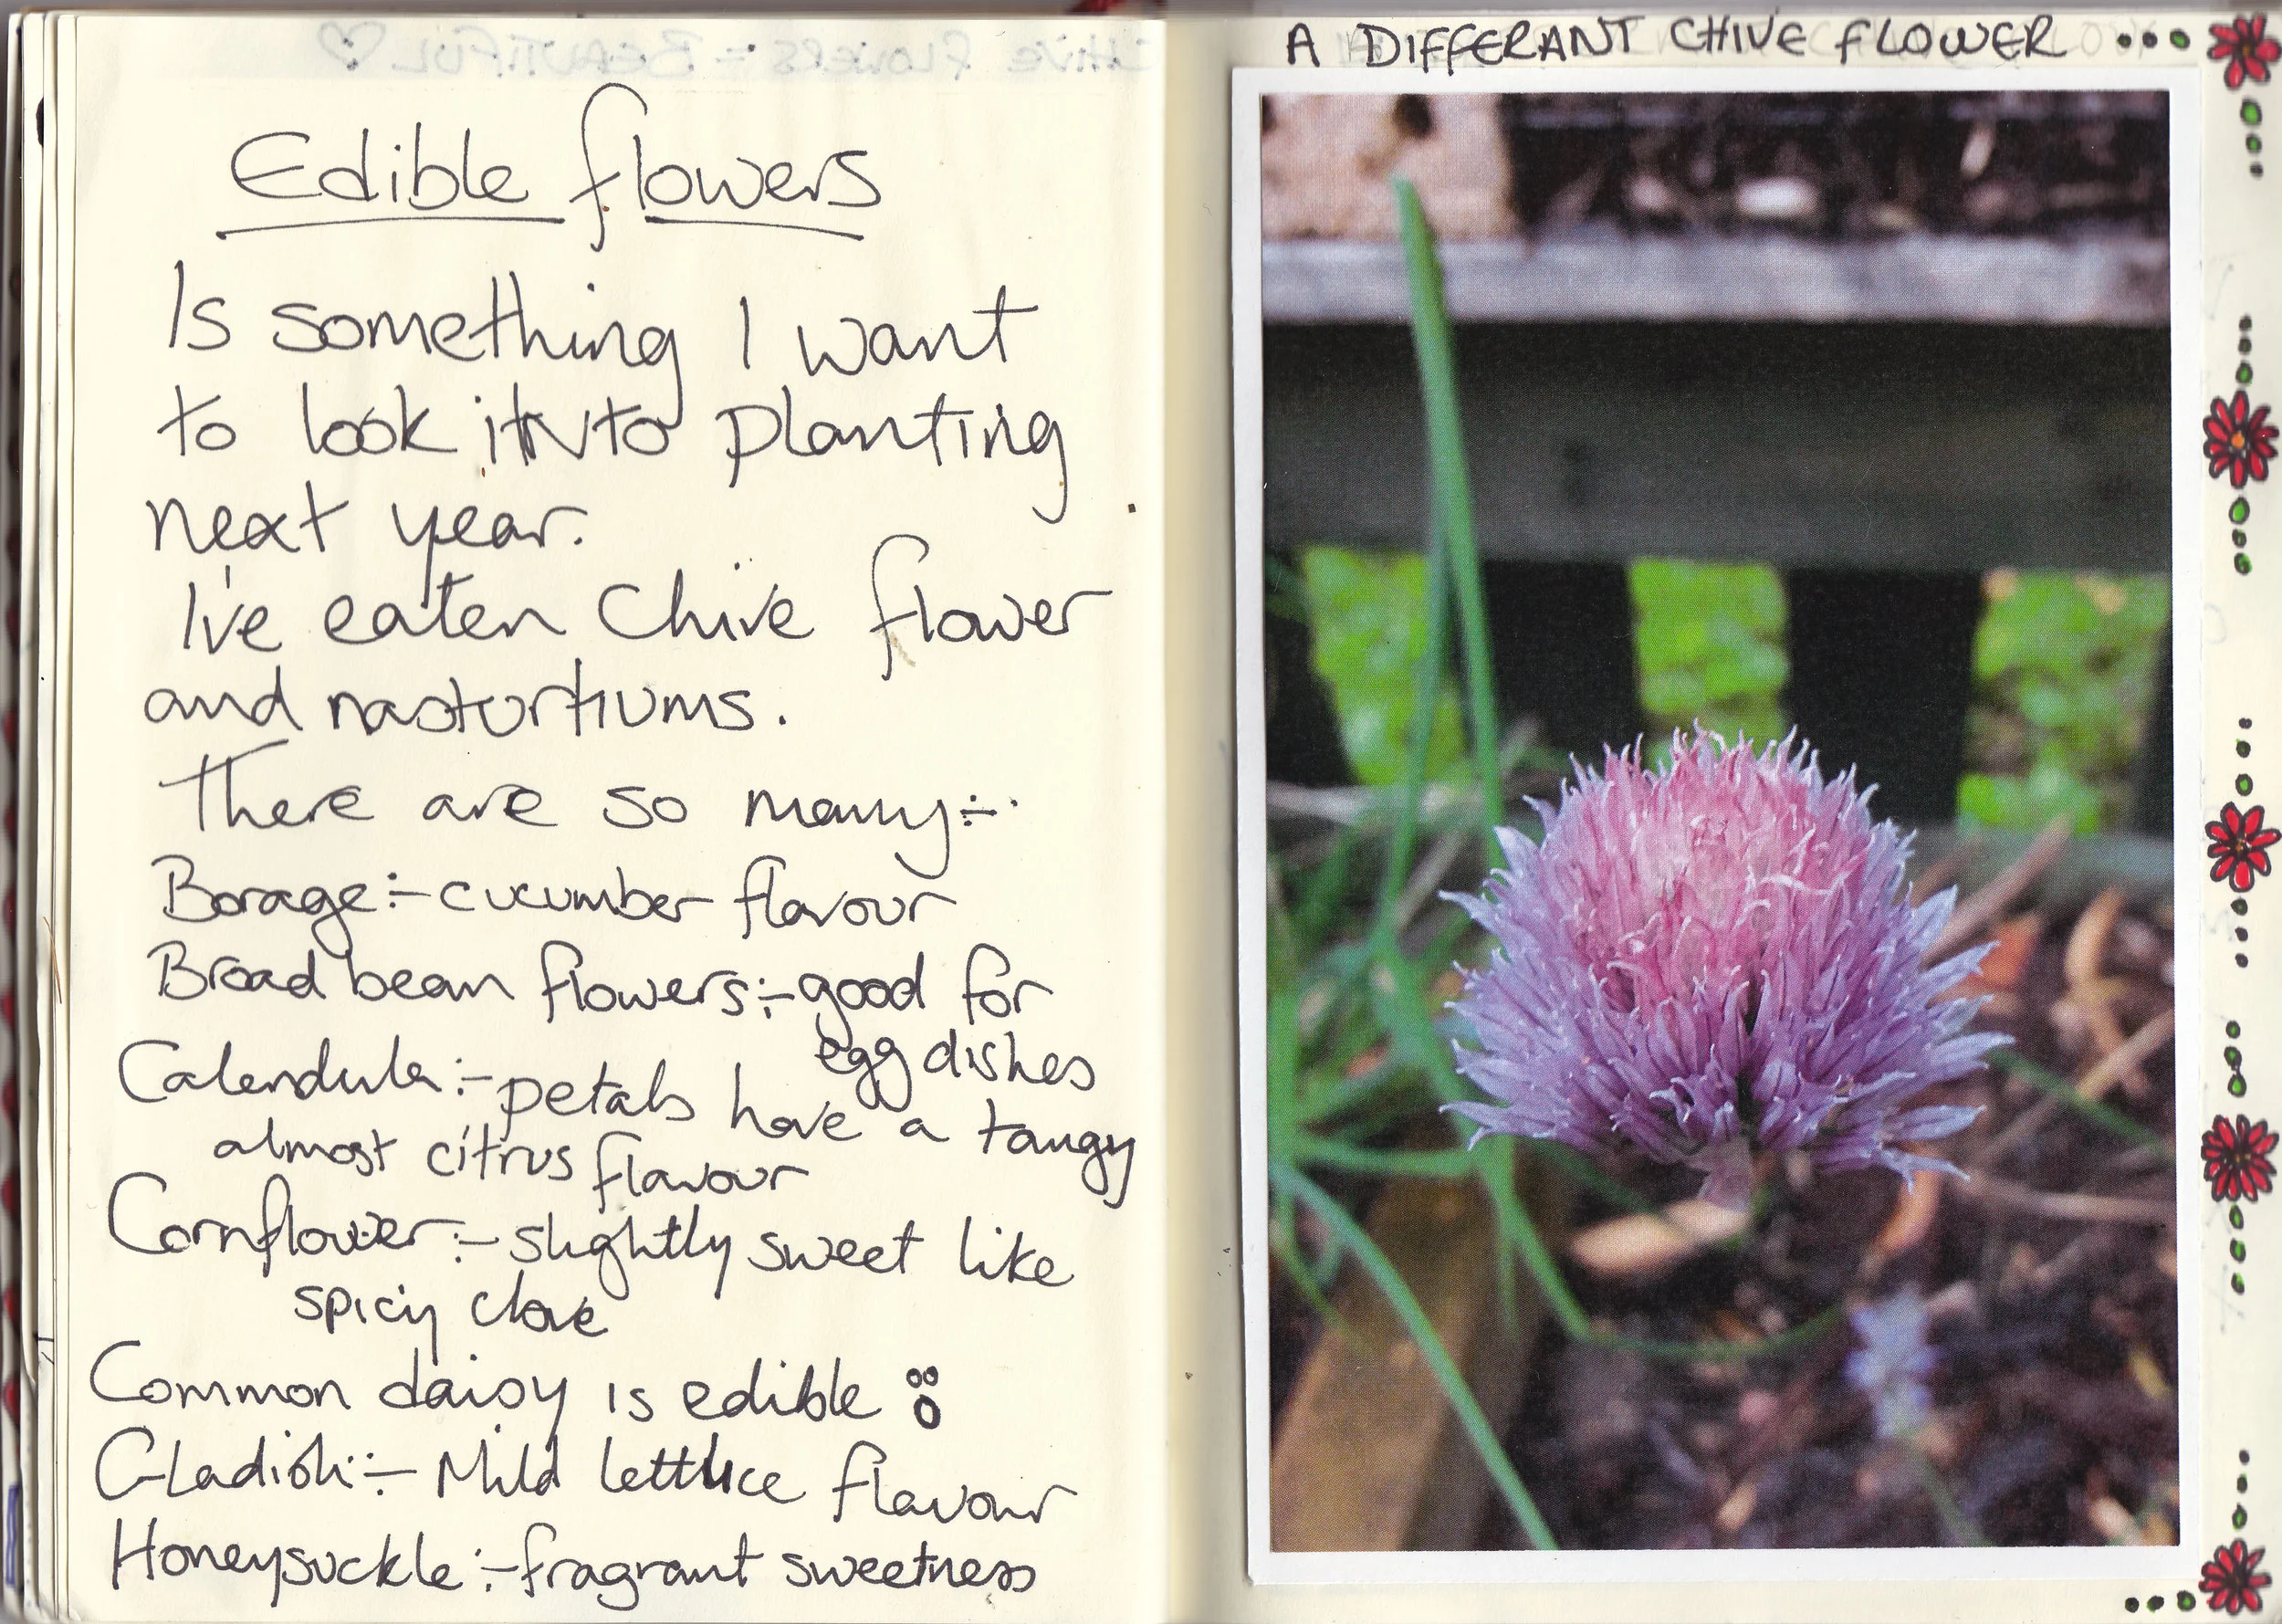 Edible flowers
Is something I want
to look into planting
next year.
I've eaten Chive flower
and nasturtiums.
There are so many:-
Borage:- cucumber flavour
Broad bean flowers:- good for
egg dishes
Calendula:- petals have a tangy
almost citrus flavour
Cornflower:- slightly sweet like
spicy clove
Common daisy is edible
Gladioli:- Mild lettuce flavour
Honeysuckle:- fragrant sweetness
A DIFFERANT CHIVE FLOWER
CHIVE FLOWERS = BEAUTIFUL ♡